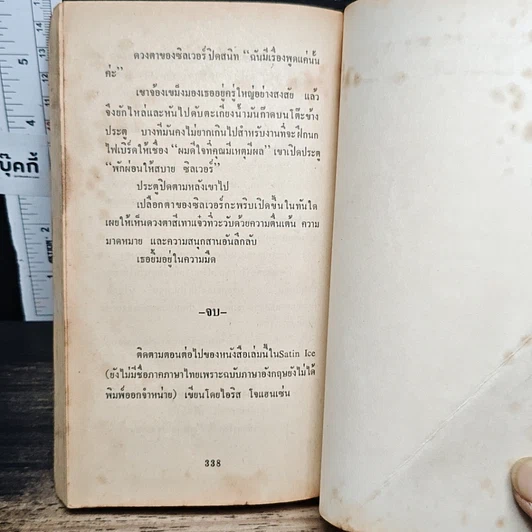 ดวงตาของซิลเวอร์ปิดสนิท “ฉันมีเรื่องพูดแค่นั้น
ค่ะ”
เขาจ้องเขม็งมองเธออยู่ครู่ใหญ่อย่างสงสัย แล้ว
จึงยักไหล่และหันไปดับตะเกียงน้ำมันก๊าดบนโต๊ะข้าง
ประตู บางทีมันคงไม่ยากเกินไปสำหรับงานที่จะฝึกนก
ไฟเบิร์ดให้เชื่อง “ผมดีใจที่คุณมีเหตุมีผล” เขาเปิดประตู
“พักผ่อนให้สบาย ซิลเวอร์”
ประตูปิดตามหลังเขาไป
เปลือกตาของซิลเวอร์กะพริบเปิดขึ้นในทันใด
เผยให้เห็นดวงตาสีเทาแจ๋วที่วะวับด้วยความตื่นเต้น ความ
มาดหมาย และความสนุกสนานอันลึกลับ
เธอยิ้มอยู่ในความมืด
–จบ–
ติดตามตอนต่อไปของหนังสือเล่มนี้ในSatin Ice
(ยังไม่มีชื่อภาคภาษาไทยเพราะฉบับภาษาอังกฤษยังไม่ได้
พิมพ์ออกจำหน่าย) เขียนโดยไอริส โจแฮนเซ่น
338
บุ๊คกี้